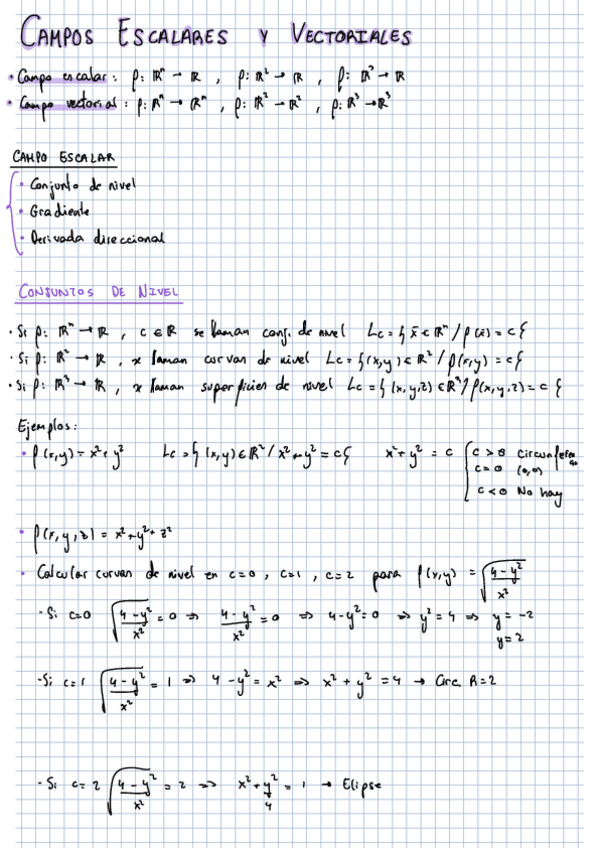 CAMPOS ESCALARES Y VECTORIALES
• Campo escalar: f: ℝⁿ → ℝ , f: ℝ² → ℝ , f: ℝ³ → ℝ
• Campo vectorial: f: ℝⁿ → ℝⁿ , f: ℝ² → ℝ² , f: ℝ³ → ℝ³
CAMPO ESCALAR
• Conjunto de nivel
• Gradiente
• Derivada direccional
CONJUNTOS DE NIVEL
• Si f: ℝⁿ → ℝ , c ∈ ℝ se llaman conj. de nivel Lc = { x̄ ∈ ℝⁿ / f(x̄) = c }
• Si f: ℝ² → ℝ , se llaman curvas de nivel Lc = { (x,y) ∈ ℝ² / f(x,y) = c }
• Si f: ℝ³ → ℝ , se llaman superficies de nivel Lc = { (x,y,z) ∈ ℝ³ / f(x,y,z) = c }
Ejemplos:
• f(x,y) = x² + y² Lc = { (x,y) ∈ ℝ² / x² + y² = c } x² + y² = c { c > 0 Circunferencia
c = 0 (0,0)
c < 0 No hay
• f(x,y,z) = x² + y² + z²
• Calcular curvas de nivel en c=0 , c=1 , c=2 para f(x,y) = √((4-y²)/x²)
- Si c=0 √((4-y²)/x²) = 0 ⇒ (4-y²)/x² = 0 ⇒ 4-y² = 0 ⇒ y² = 4 ⇒ y = -2
y = 2
- Si c=1 √((4-y²)/x²) = 1 ⇒ 4-y² = x² ⇒ x² + y² = 4 → Circ. R=2
- Si c=2 √((4-y²)/x²) = 2 ⇒ x² + y²/4 = 1 → Elipse